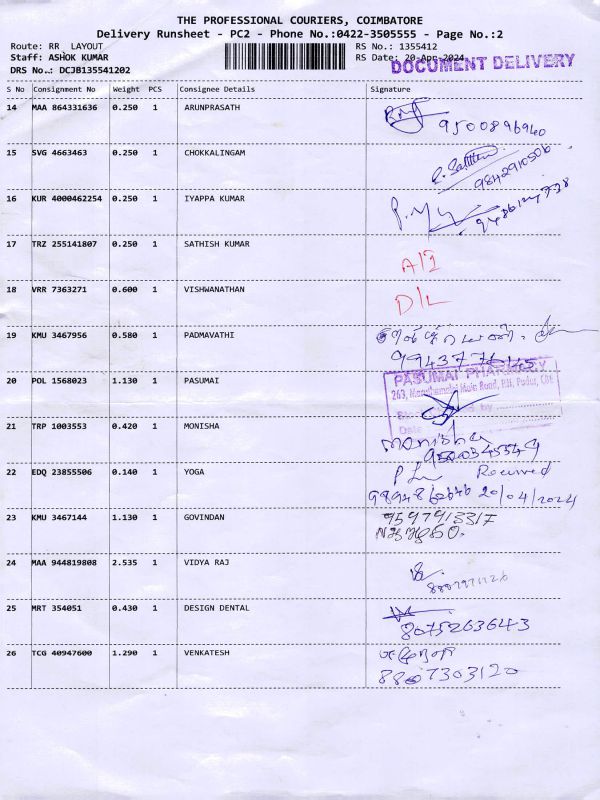 THE PROFESSIONAL COURIERS, COIMBATORE
Delivery Runsheet - PC2 - Phone No.:0422-3505555 - Page No.:2
Route: RR LAYOUT RS No.: 1355412
Staff: ASHOK KUMAR RS Date: 20-Apr-2024
DOCUMENT DELIVERY
DRS No.: DCJB135541202
S No Consignment No Weight PCS Consignee Details Signature
14 MAA 864331636 0.250 1 ARUNPRASATH
9500896940
15 SVG 4663463 0.250 1 CHOKKALINGAM
9842910506
16 KUR 4000462254 0.250 1 IYAPPA KUMAR
17 TRZ 255141807 0.250 1 SATHISH KUMAR
18 VRR 7363271 0.600 1 VISHWANATHAN
D/L
19 KMU 3467956 0.580 1 PADMAVATHI
PASUMAI PHARMACY
20 POL 1568023 1.130 1 PASUMAI
263, Maruthamalai Main Road, P.N. Pudur, CBE
Date
21 TRP 1003553 0.420 1 MONISHA
Monisha
22 EDQ 23855506 0.140 1 YOGA
Received
20/04/2024
23 KMU 3467144 1.130 1 GOVINDAN
9597913317
24 MAA 944819808 2.535 1 VIDYA RAJ
25 MRT 354051 0.430 1 DESIGN DENTAL
8075263643
26 TCG 40947600 1.290 1 VENKATESH
8807303120